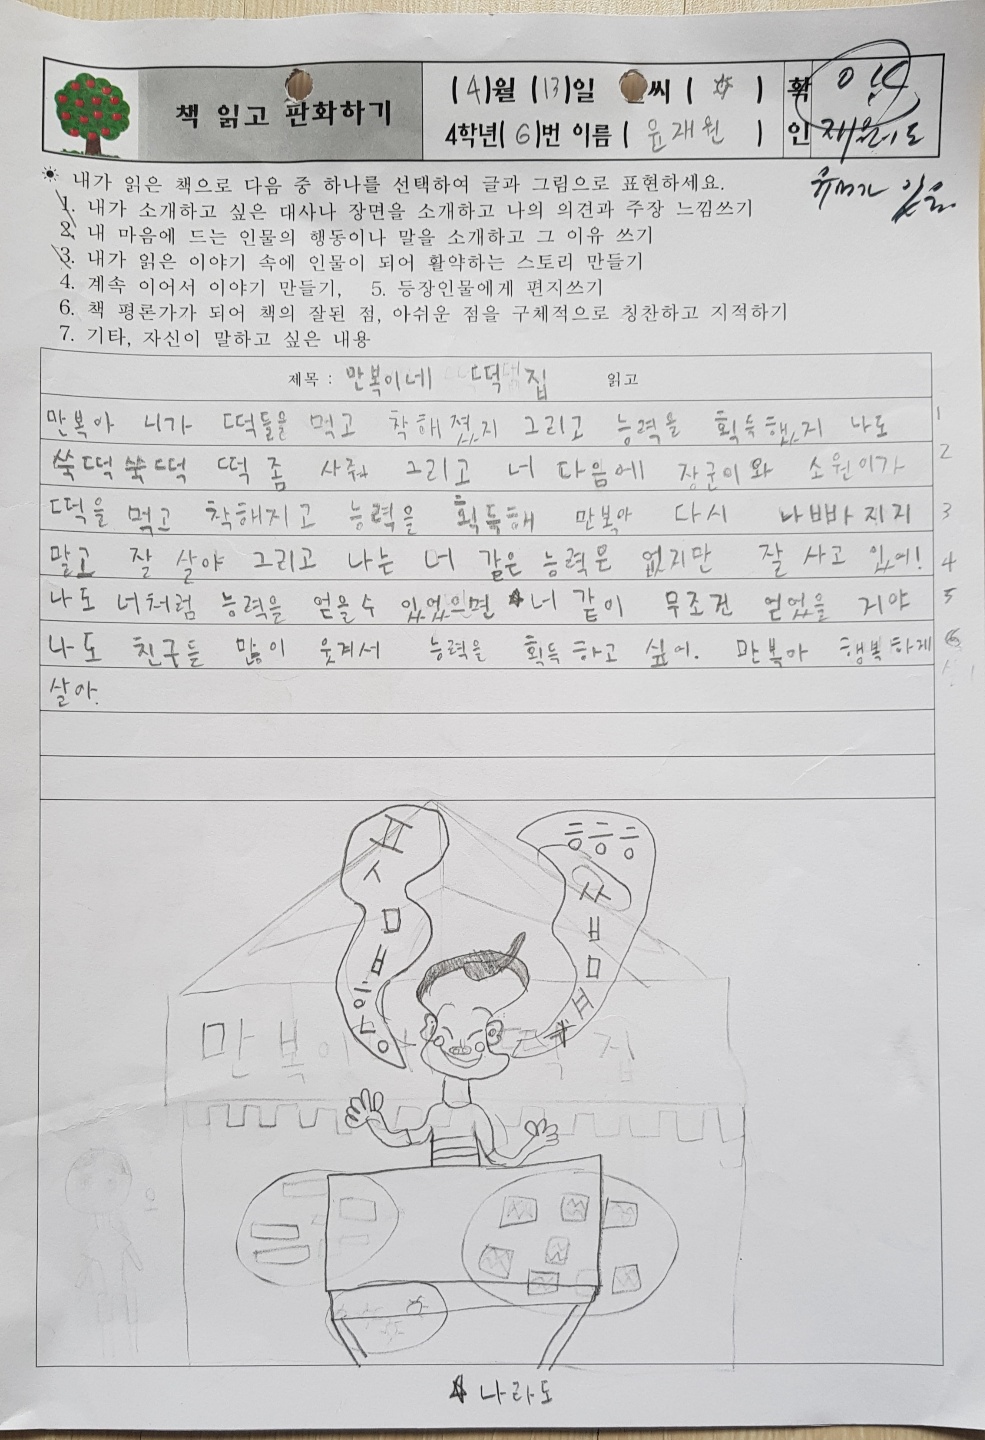 책 읽고 판화하기
(4)월 (13)일 씨 ( ) 확
4학년(6)번 이름 ( 윤재원 ) 인
재원이도
유머가 있음
내가 읽은 책으로 다음 중 하나를 선택하여 글과 그림으로 표현하세요.
1. 내가 소개하고 싶은 대사나 장면을 소개하고 나의 의견과 주장 느낌쓰기
2. 내 마음에 드는 인물의 행동이나 말을 소개하고 그 이유 쓰기
3. 내가 읽은 이야기 속에 인물이 되어 활약하는 스토리 만들기
4. 계속 이어서 이야기 만들기, 5. 등장인물에게 편지쓰기
6. 책 평론가가 되어 책의 잘된 점, 아쉬운 점을 구체적으로 칭찬하고 지적하기
7. 기타, 자신이 말하고 싶은 내용
제목 : 만복이네 떡집 읽고
만복아 니가 떡들을 먹고 착해졌지 그리고 능력을 획득했지 나도 1
쑥떡쑥떡 떡 좀 사줘 그리고 너 다음에 장군이와 소원이가 2
떡을 먹고 착해지고 능력을 획득해 만복아 다시 나빠지지 3
말고 잘 살아 그리고 나는 너 같은 능력은 없지만 잘 사고 있어! 4
나도 너처럼 능력을 얻을수 있었으면 너 같이 무조건 얻었을 거야 5
나도 친구들 많이 웃겨서 능력을 획득하고 싶어. 만복아 행복하게 6
살아.
만복이 집
나라도